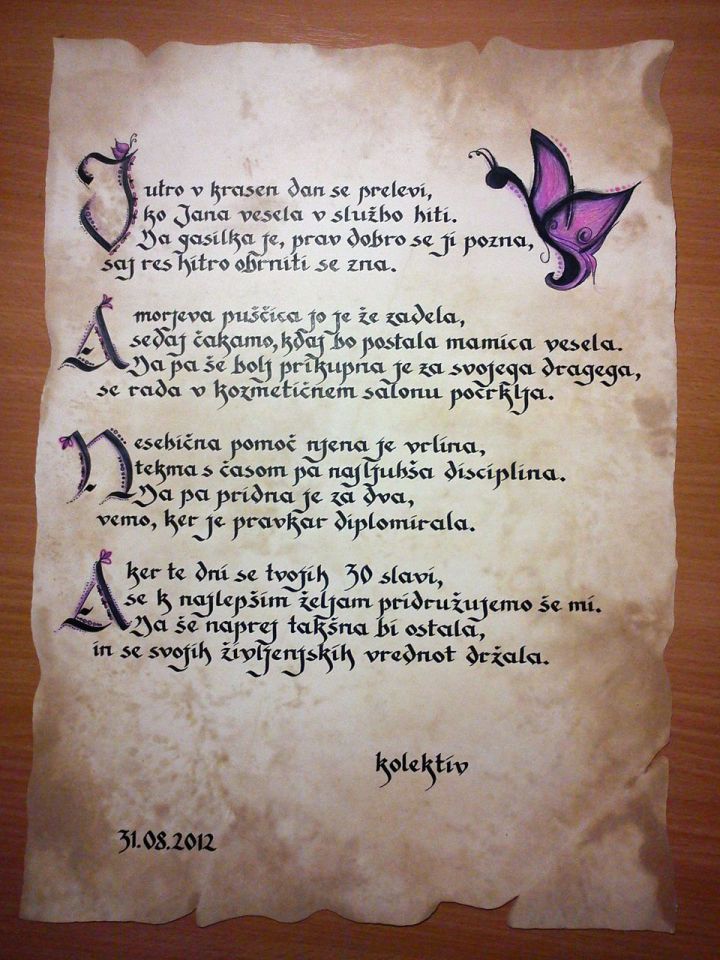 Jutro v krasen dan se prelevi,
ko Jana vesela v službo hiti.
Da gasilka je, prav dobro se ji pozna,
saj res hitro obrniti se zna.
Amorjeva puščica jo je že zadela,
sedaj čakamo, kdaj bo postala mamica vesela.
Da pa še bolj prikupna je za svojega dragega,
se rada v kozmetičnem salonu pocrklja.
Nesebična pomoč njena je vrlina,
tekma s časom pa najljubša disciplina.
Da pa pridna je za dva,
vemo, ker je pravkar diplomirala.
Aker te dni se tvojih 30 slavi,
se k najlepšim željam pridružujemo še mi.
Da še naprej takšna bi ostala,
in se svojih življenjskih vrednot držala.
kolektiv
31.08.2012